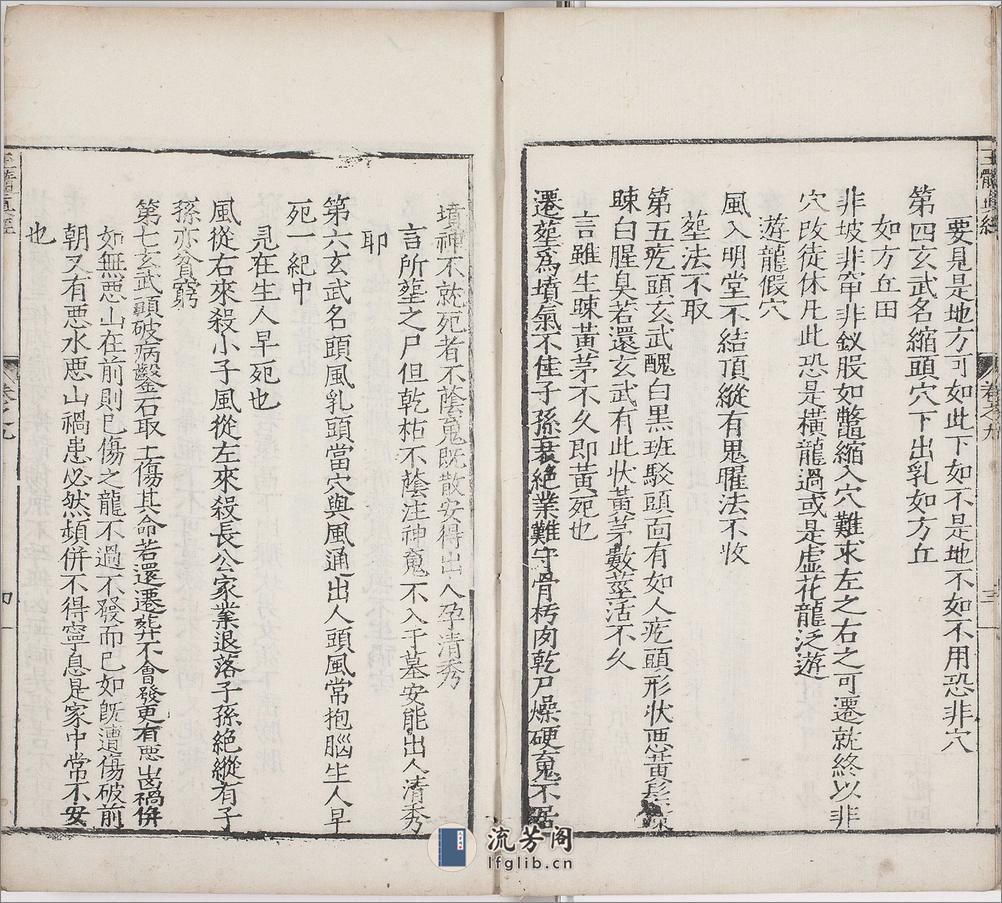 玉髓真經
卷之九
三
要見是地方可如此下如不是地不如不用恐非穴
第四玄武名縮頭穴下出乳如方丘
如方丘田
非坡非窜非釵股如鼈縮入穴難求左之右之可遷就終以非
穴改徒休凡此恐是橫龍過或是虛花龍泛遊
遊龍假穴
風入明堂不結頂縱有鬼曜法不收
塟法不取
第五疙頭玄武醜白黑班駁頭面有如人疙頭形狀惡黄髮
踈白腥臭若還玄武有此状黃茅數莖活不久
言雖生踈黃茅不久即黃死也
遷塟爲墳氣不佳子孫衰絕業難守骨枯肉乾尸燥硬䰟不居
墳神不就死者不蔭䰟既散安得出人孕清秀
言所塟之尸但乾枯不蔭注神䰟不入于墓安能出人清秀
耶
第六玄武名頭風乳頭當穴與風通出人頭風常抱腦生人早
死一紀中
見在生人早死也
風從右來殺小子風從左來殺長公家業退落子孫絕縱有子
孫亦貧窮
第七玄武頭破病鑿石取土傷其命若還遷塟不會發更有惡崗禍併
如無惡山在前則已傷之龍不過不發而已如既遭傷破前
朝又有惡水惡山禍患必然頻併不得寧息是家中常不安
也
卷之九
四
流芳阁
lfglib.cn